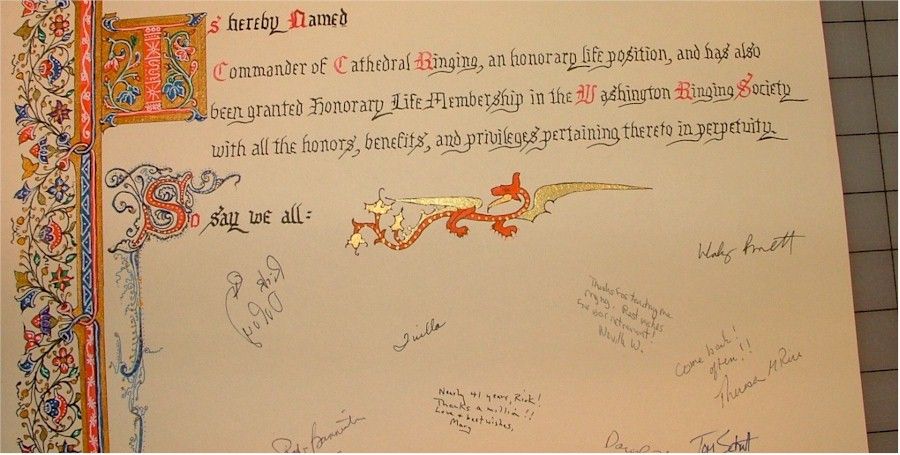 Is hereby Named
Commander of Cathedral Ringing, an honorary life position, and has also
been granted Honorary Life Membership in the Washington Ringing Society
with all the honors, benefits, and privileges pertaining thereto in perpetuity.
So say we all:
Thanks for teaching me
ringing. Best wishes
for your retirement!
W.
Come back!
often!!
Theresa H Rice
Nearly 41 years, Rick!
Thanks a million!!
Love & best wishes,
Mary